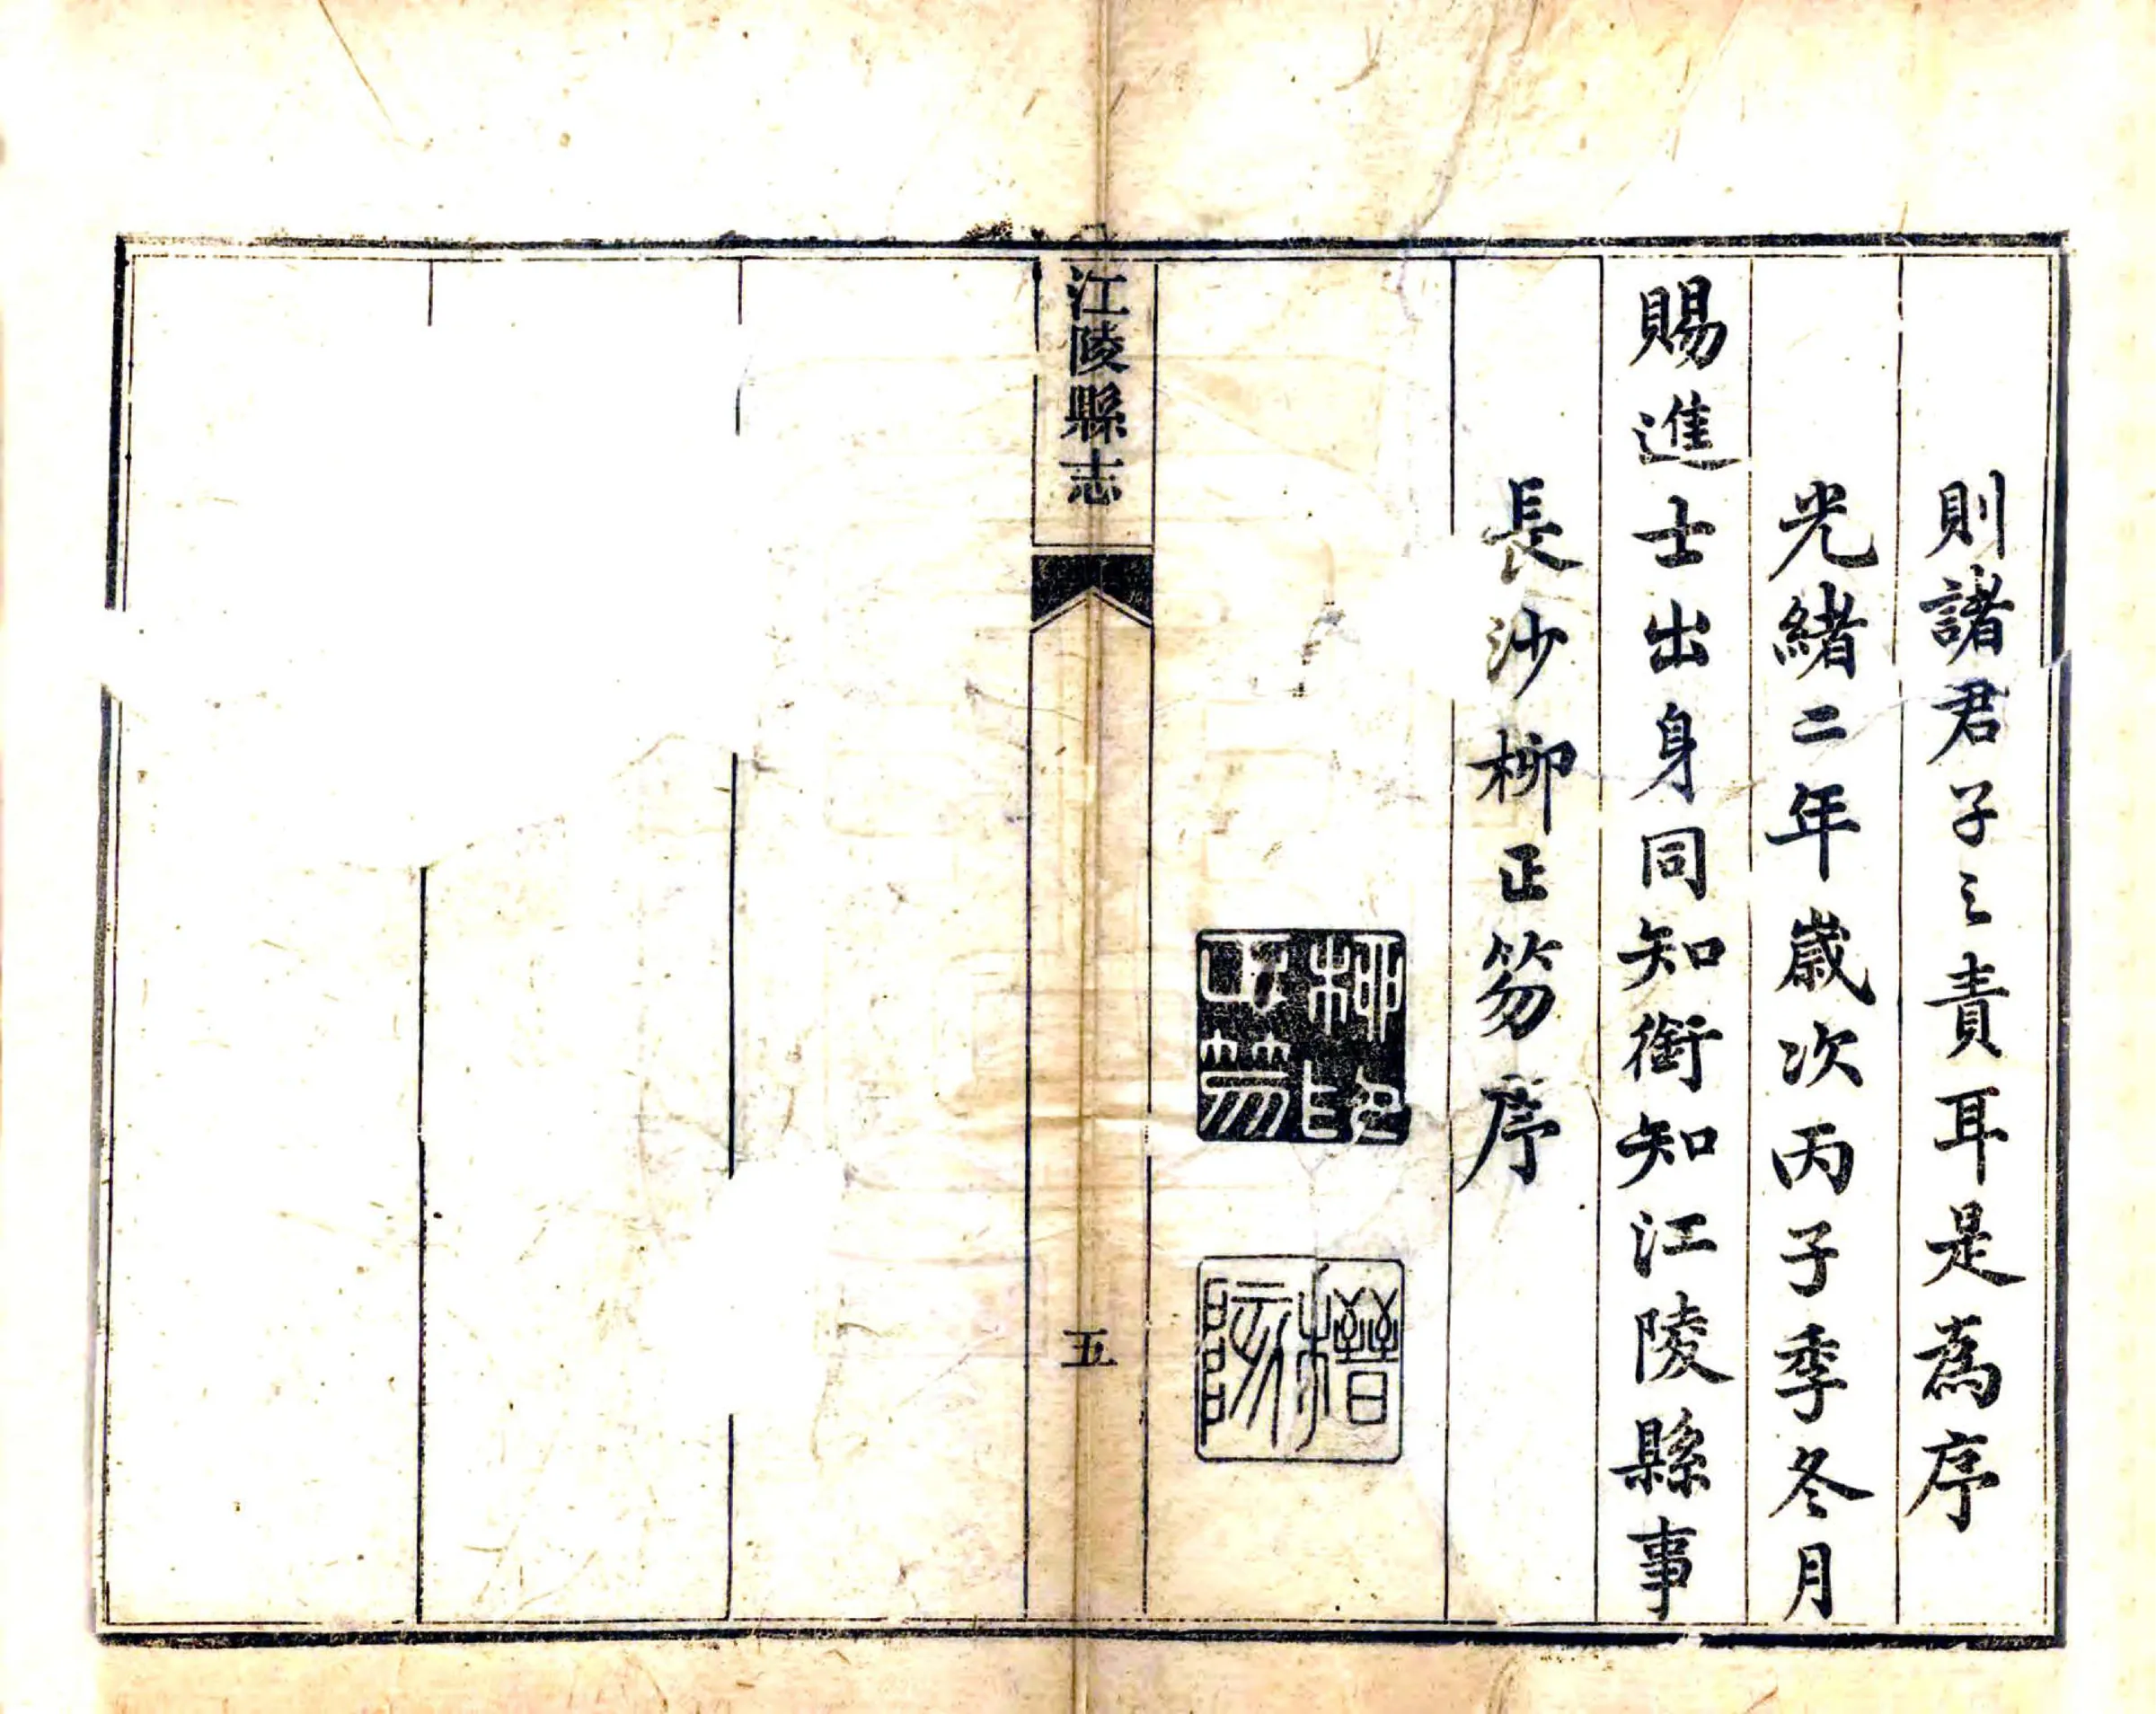 則諸君子之責耳是為序
光緒二年歲次丙子季冬月
賜進士出身同知銜知江陵縣事
長沙柳正笏序
柳印正笏
江陵縣志
五